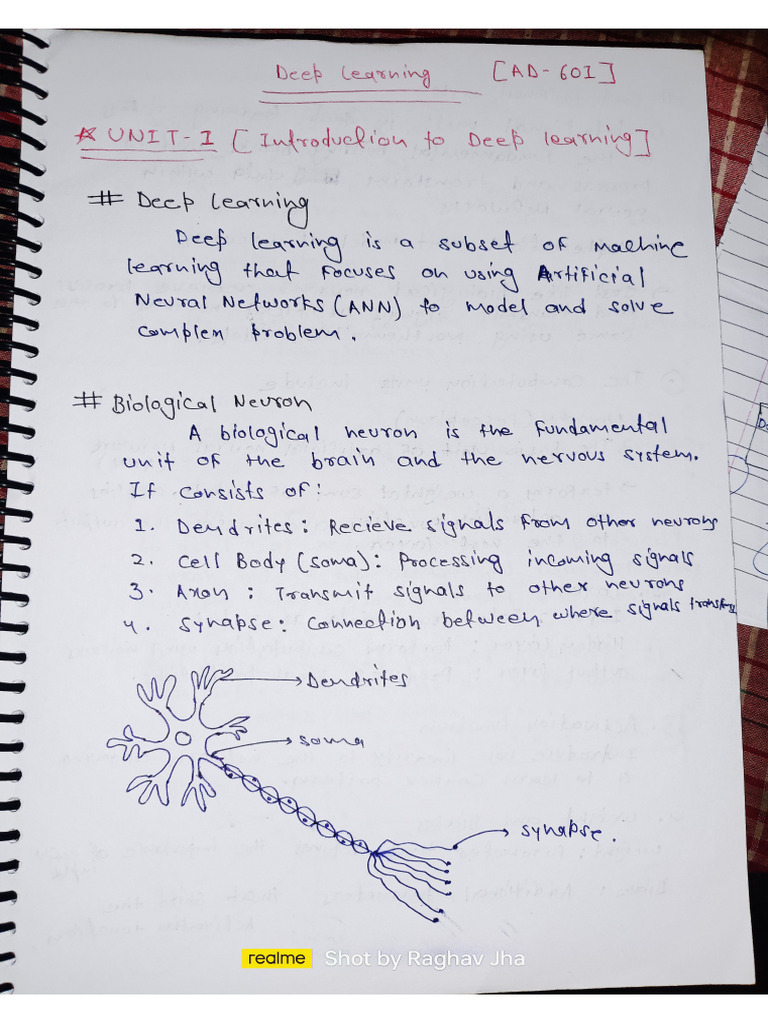 Deep Learning [AD-601]
* UNIT-I [Introduction to Deep learning]
# Deep Learning
Deep learning is a subset of machine
learning that focuses on using Artificial
Neural Networks (ANN) to model and solve
complex problem.
# Biological Neuron
A biological neuron is the fundamental
unit of the brain and the nervous system.
It consists of:
1. Dendrites: Recieve signals from other neurons
2. Cell Body (soma): Processing incoming signals
3. Axon: Transmit signals to other neurons
4. Synapse: Connection between where signals transfer
Dendrites
soma
synapse.
realme Shot by Raghav Jha